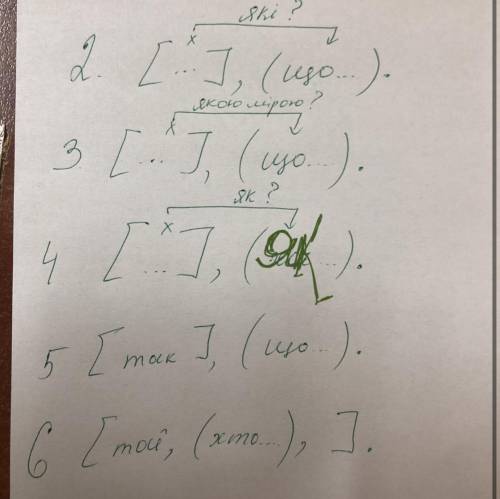 які?
x
2. [...], (що...).
якою мірою?
x
3 [...], (що...).
як?
x
4 [...], (як...).
5 [так], (що...).
6 [той, (хто...), ].